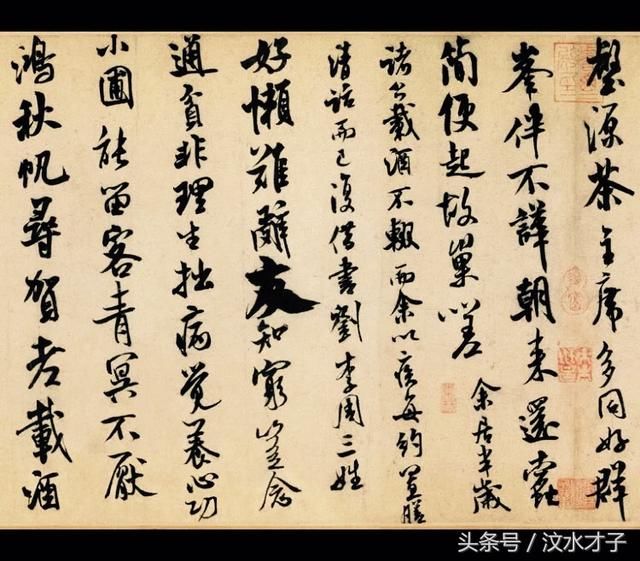 壑源茶主席多同好群
峯伴不譁朝来還蠹
簡便起故巢嗟
余居半歲
諸公載酒不輟而余以疾每約置膳
清話而已復借書劉李周三姓
好懶難辭友知窮豈念
通貧非理生拙病覺養心功
小圃能留客青冥不厭
鴻秋帆尋賀老載酒
头条号 / 汶水才子